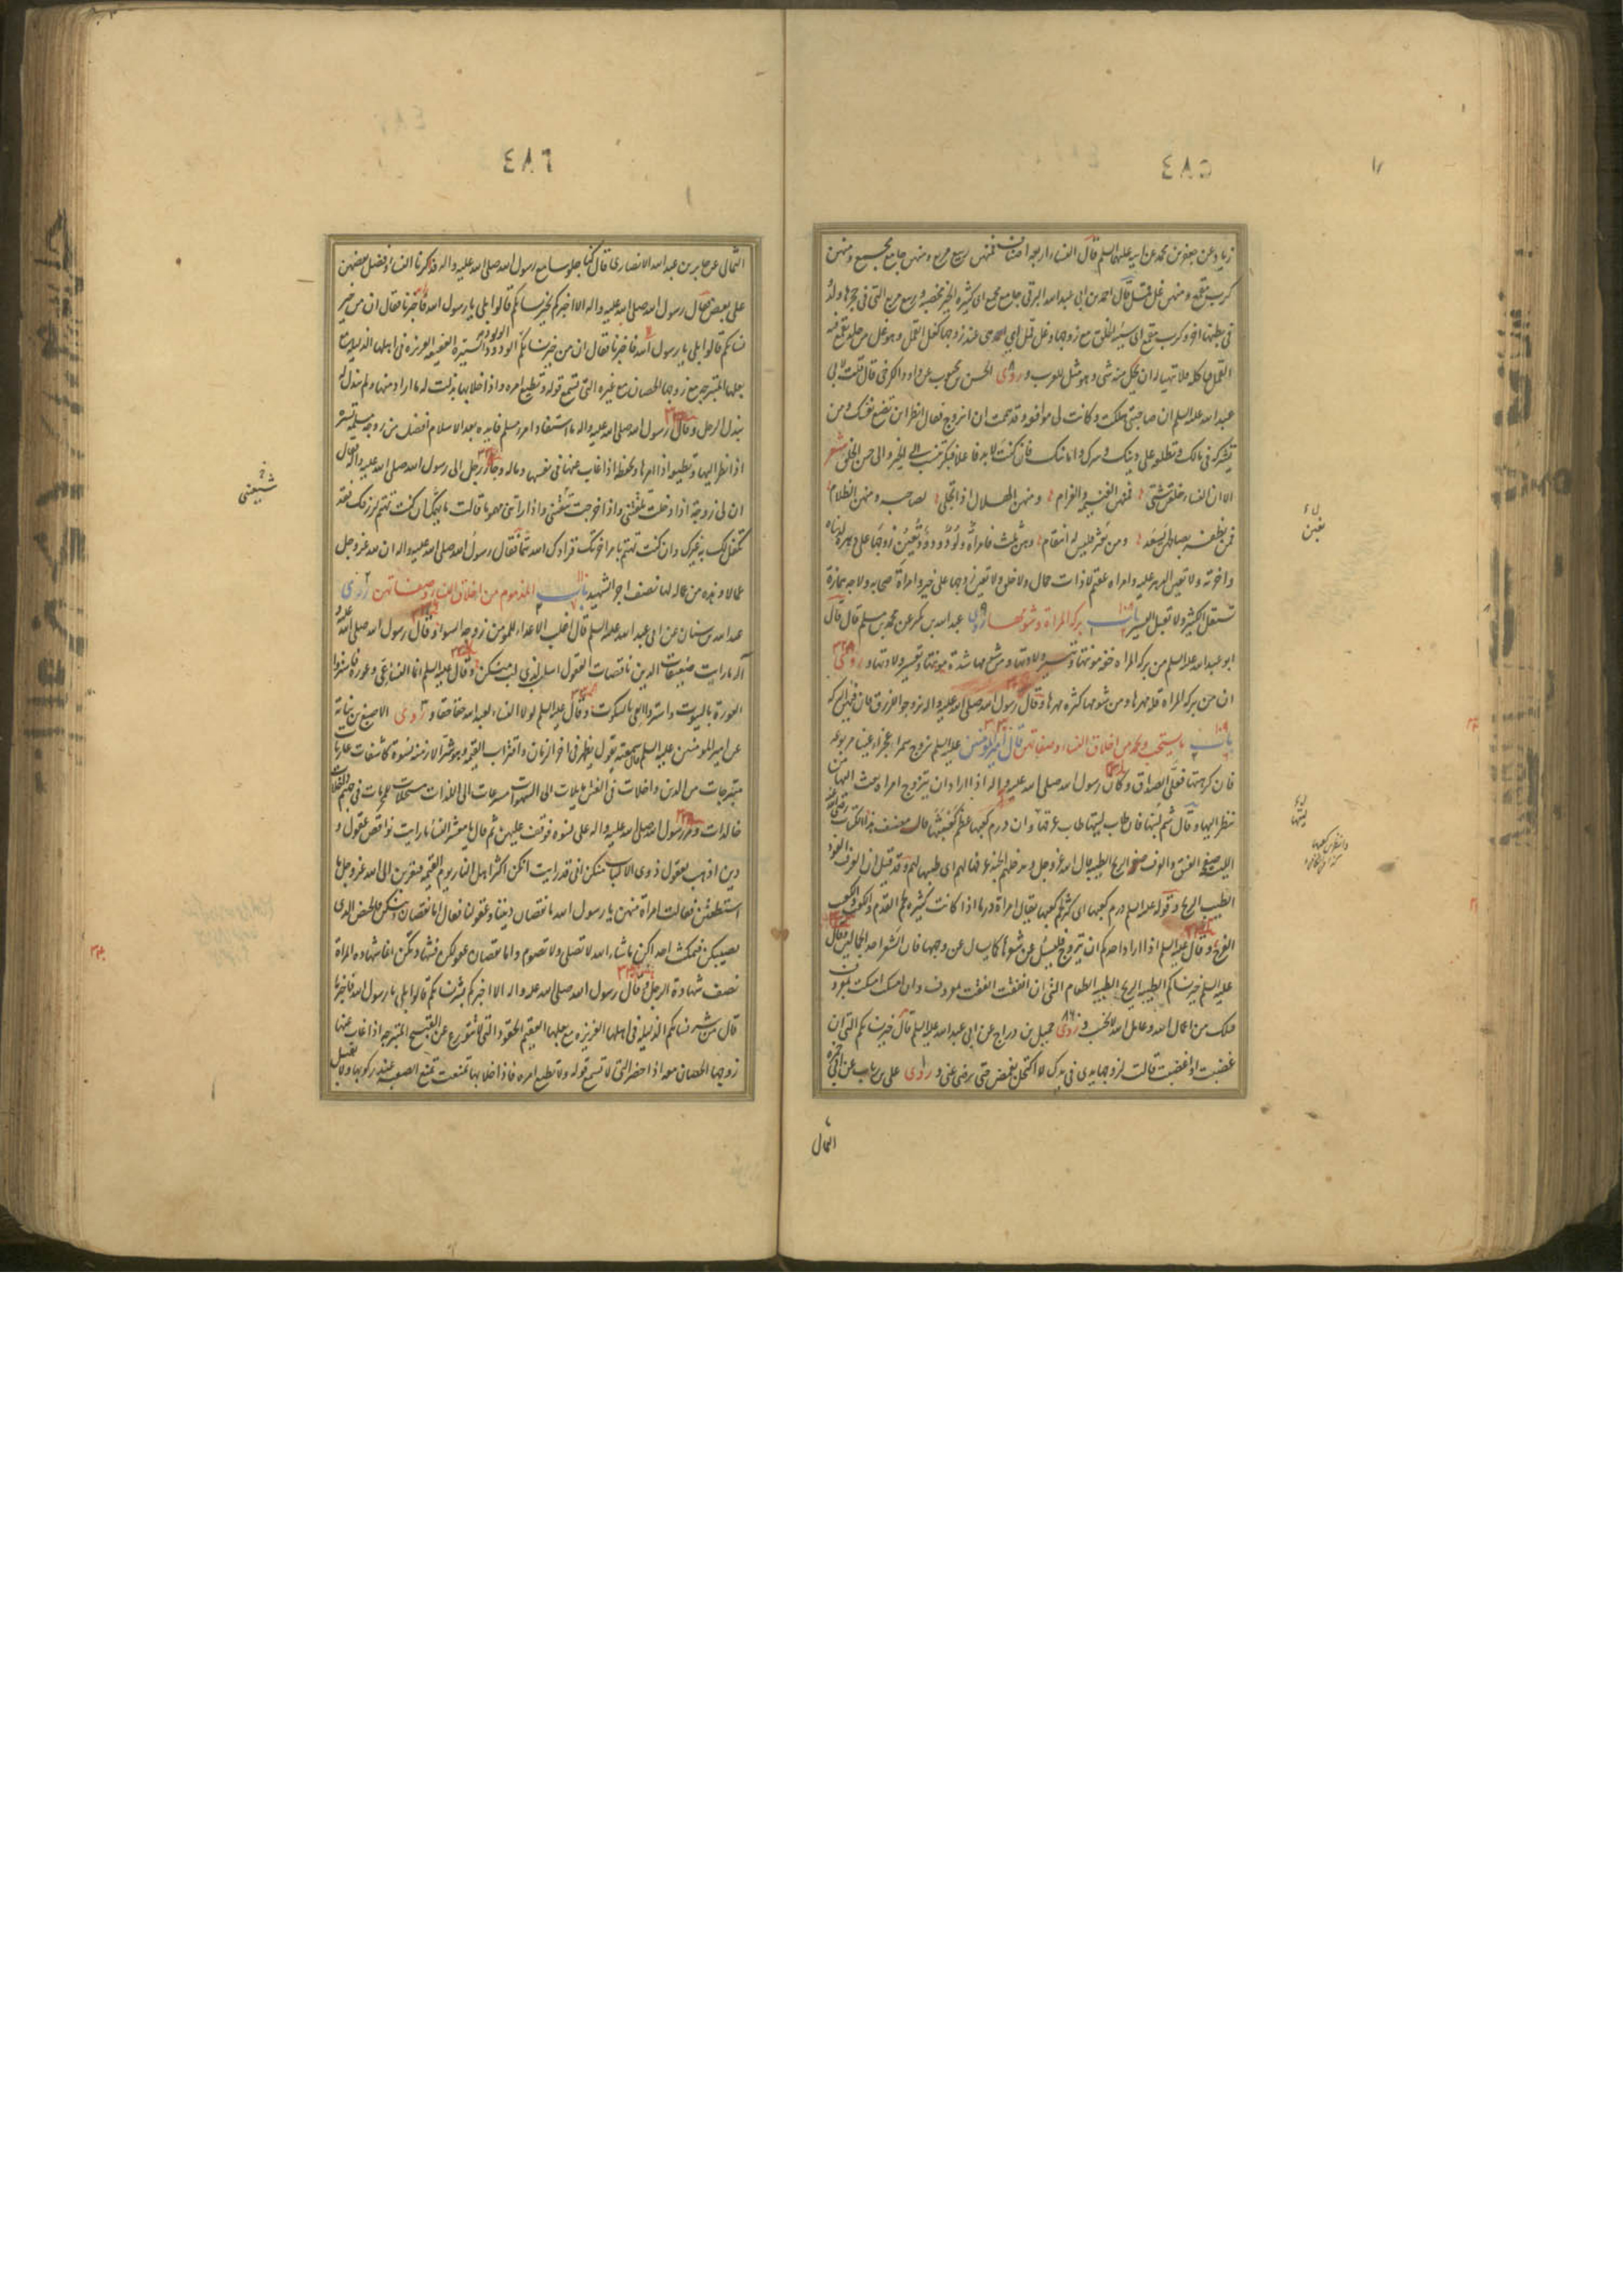 ٤٨٥
زياد عن جعفر بن محمد عن ابيه عليهما السلم قال النساء اربعة اصناف فمنهن ربيع مربع ومنهن جامع مجمع ومنهن
كرب مقمع ومنهن غل قمل قال احمد بن ابي عبد الله البرقي جامع مجمع اى كثيرة الخير مخصبة وربيع مربع التي في حجرها ولد
في بطنها اخر وكرب مقمع اى سيئة الخلق مع زوجها وغل قمل اى هى عند زوجها كالغل القمل وهو غل من جلد يقع فيه
القمل فياكله فلا يتهيا له ان يحل منه شى وهو مثل للعرب و روى الحسن بن محبوب عن داود الكرخى قال قلت لابى
عبد الله عليه السلم ان صاحبتي هلكت وكانت لى موافقة وقد هممت ان اتزوج فقال انظر اين تضع نفسك ومن
تشركه في مالك وتطلعه على دينك وسرك وامانتك فان كنت لا بد فاعلا فبكرا تنسب الى الخير والى حسن الخلق شعر
الا ان النساء خلقن شتى فمنهن الغنيمة والغرام ومنهن الهلال اذا تجلى لصاحبه ومنهن الظلام
فمن يظفر بصالحهن يسعد ومن يعثر فليس له انتقام وهن ثلث فامراة ولود ودود تعين زوجها على دهره لدنياه
واخرته ولا تعين الدهر عليه وامراة عقيم لا ذات جمال ولا خلق ولا تعين زوجها على خير وامراة صخابة ولاجة همازة
تستقل الكثير ولا تقبل اليسير باب بركة المراة وشومها روى عبد الله بن بكير عن محمد بن مسلم قال قال
ابو عبد الله عليه السلم من بركة المراة خفة مونتها وتيسير ولادتها ومن شومها شدة مونتها وتعسير ولادتها و روى
ان من بركة المراة قلة مهرها ومن شومها كثرة مهرها وقال رسول الله صلى الله عليه واله تزوجوا الزرق فان فيهن البركة
باب ما يستحب ويحمد من اخلاق النساء وصفاتهن قال امير المومنين عليه السلم تزوج سمراء عجزاء عيناء مربوعة
فان كرهتها فعلى الصداق وكان رسول الله صلى الله عليه واله اذا اراد ان يتزوج امراة بعث اليها من
ينظر اليها وقال شم ليتها فان طاب ليتها طاب عرفها وان درم كعبها عظم كعثبها قال مصنف هذا الكتاب رضى الله عنه
الليت صفح العنق والعرف الريح الطيبة قال الله عز وجل ويدخلهم الجنة عرفها لهم اى طيبها لهم وقد قيل ان العرف العود
الطيب الريح وقوله عليه السلم درم كعبها اى كثر لحم كعبها يقال امراة درماء اذا كانت كثيرة لحم القدم والكعب والكعثب
الفرج وقال عليه السلم اذا اراد احدكم ان يتزوج فليسئل عن شعرها كما يسال عن وجهها فان الشعر احد الجمالين وقال
عليه السلم خير نسائكم الطيبة الريح الطيبة الطعام التي ان انفقت انفقت بمعروف وان امسكت امسكت بمعروف
فتلك من عمال الله وعامل الله لا يخيب و روى جميل بن دراج عن ابي عبد الله عليه السلم قال خير نسائكم التي ان
غضبت او اغضبت قالت لزوجها يدى فى يدك لا اكتحل بغمض حتى ترضى عنى و روى على بن رئاب عن ابى حمزة
الثمالى
يعين
ليتها
٤٨٦
الثمالى عن جابر بن عبد الله الانصارى قال كنا جلوسا مع رسول الله صلى الله عليه واله فذكرنا النساء وفضل بعضهن
على بعض فقال رسول الله صلى الله عليه واله الا اخبركم بخير نسائكم قالوا بلى يا رسول الله فاخبرنا فقال ان من خير
نسائكم قالوا بلى يا رسول الله فاخبرنا فقال ان من خير نسائكم الولود الودود الستيرة العفيفة العزيزة فى اهلها الذليلة مع
بعلها المتبرجة مع زوجها الحصان مع غيره التى تسمع قوله وتطيع امره واذا خلا بها بذلت له ما اراد منها ولم تبذل له
تبذل الرجل وقال رسول الله صلى الله عليه واله ما استفاد امرء مسلم فايدة بعد الاسلام افضل من زوجة مسلمة تسره
اذا نظر اليها وتطيعه اذا امرها وتحفظه اذا غاب عنها فى نفسها وماله وجاء رجل الى رسول الله صلى الله عليه واله فقال
ان لى زوجة اذا دخلت تلقتنى واذا خرجت شيعتنى واذا راتنى مهموما قالت ما يهمك ان كنت تهتم لرزقك فقد
تكفل لك به غيرك وان كنت تهتم بامر اخرتك فزادك الله هما فقال رسول الله صلى الله عليه واله ان لله عز وجل
عمالا وهذه من عماله لها نصف اجر الشهيد باب المذموم من اخلاق النساء وصفاتهن روى
عبد الله بن سنان عن ابى عبد الله عليه السلم قال اغلب الاعداء للمومن زوجة السوء وقال رسول الله صلى الله عليه و
اله ما رايت ضعيفات الدين ناقصات العقول اسلب لذى لب منكن وقال عليه السلم انما النساء عى وعورة فاستروا
العورة بالبيوت واستروا العى بالسكوت وقال عليه السلم لولا النساء لعبد الله حقا حقا و روى الاصبغ بن نباتة
عن امير المومنين عليه السلم قال سمعته يقول يظهر فى اخر الزمان واقتراب القيمة وهو شر الازمنة نسوة كاشفات عاريات
متبرجات من الدين داخلات فى الفتن مايلات الى الشهوات مسرعات الى اللذات مستحلات للمحرمات فى جهنم
خالدات ومر رسول الله صلى الله عليه واله على نسوة فوقف عليهن ثم قال يا معشر النساء ما رايت نواقص عقول و
دين اذهب بعقول ذوى الالباب منكن انى قد رايت انكن اكثر اهل النار يوم القيمة فتقربن الى الله عز وجل ما
استطعتن فقالت امراة منهن يا رسول الله ما نقصان ديننا وعقولنا فقال اما نقصان دينكن فالحيض الذى
يصيبكن فتمكث احديكن ما شاء الله لا تصلى ولا تصوم واما نقصان عقولكن فشهادتكن انما شهادة المراة
نصف شهادة الرجل وقال رسول الله صلى الله عليه واله الا اخبركم بشر نسائكم قالوا بلى يا رسول الله فاخبرنا
قال من شر نسائكم الذليلة فى اهلها العزيزة مع بعلها العقيم الحقود التى لا تتورع عن القبيح المتبرجة اذا غاب عنها
زوجها الحصان معه اذا حضر التى لا تسمع قوله ولا تطيع امره فاذا خلا بها تمنعت تمنع الصعبة عند ركوبها ولا تقبل
شيعتنى